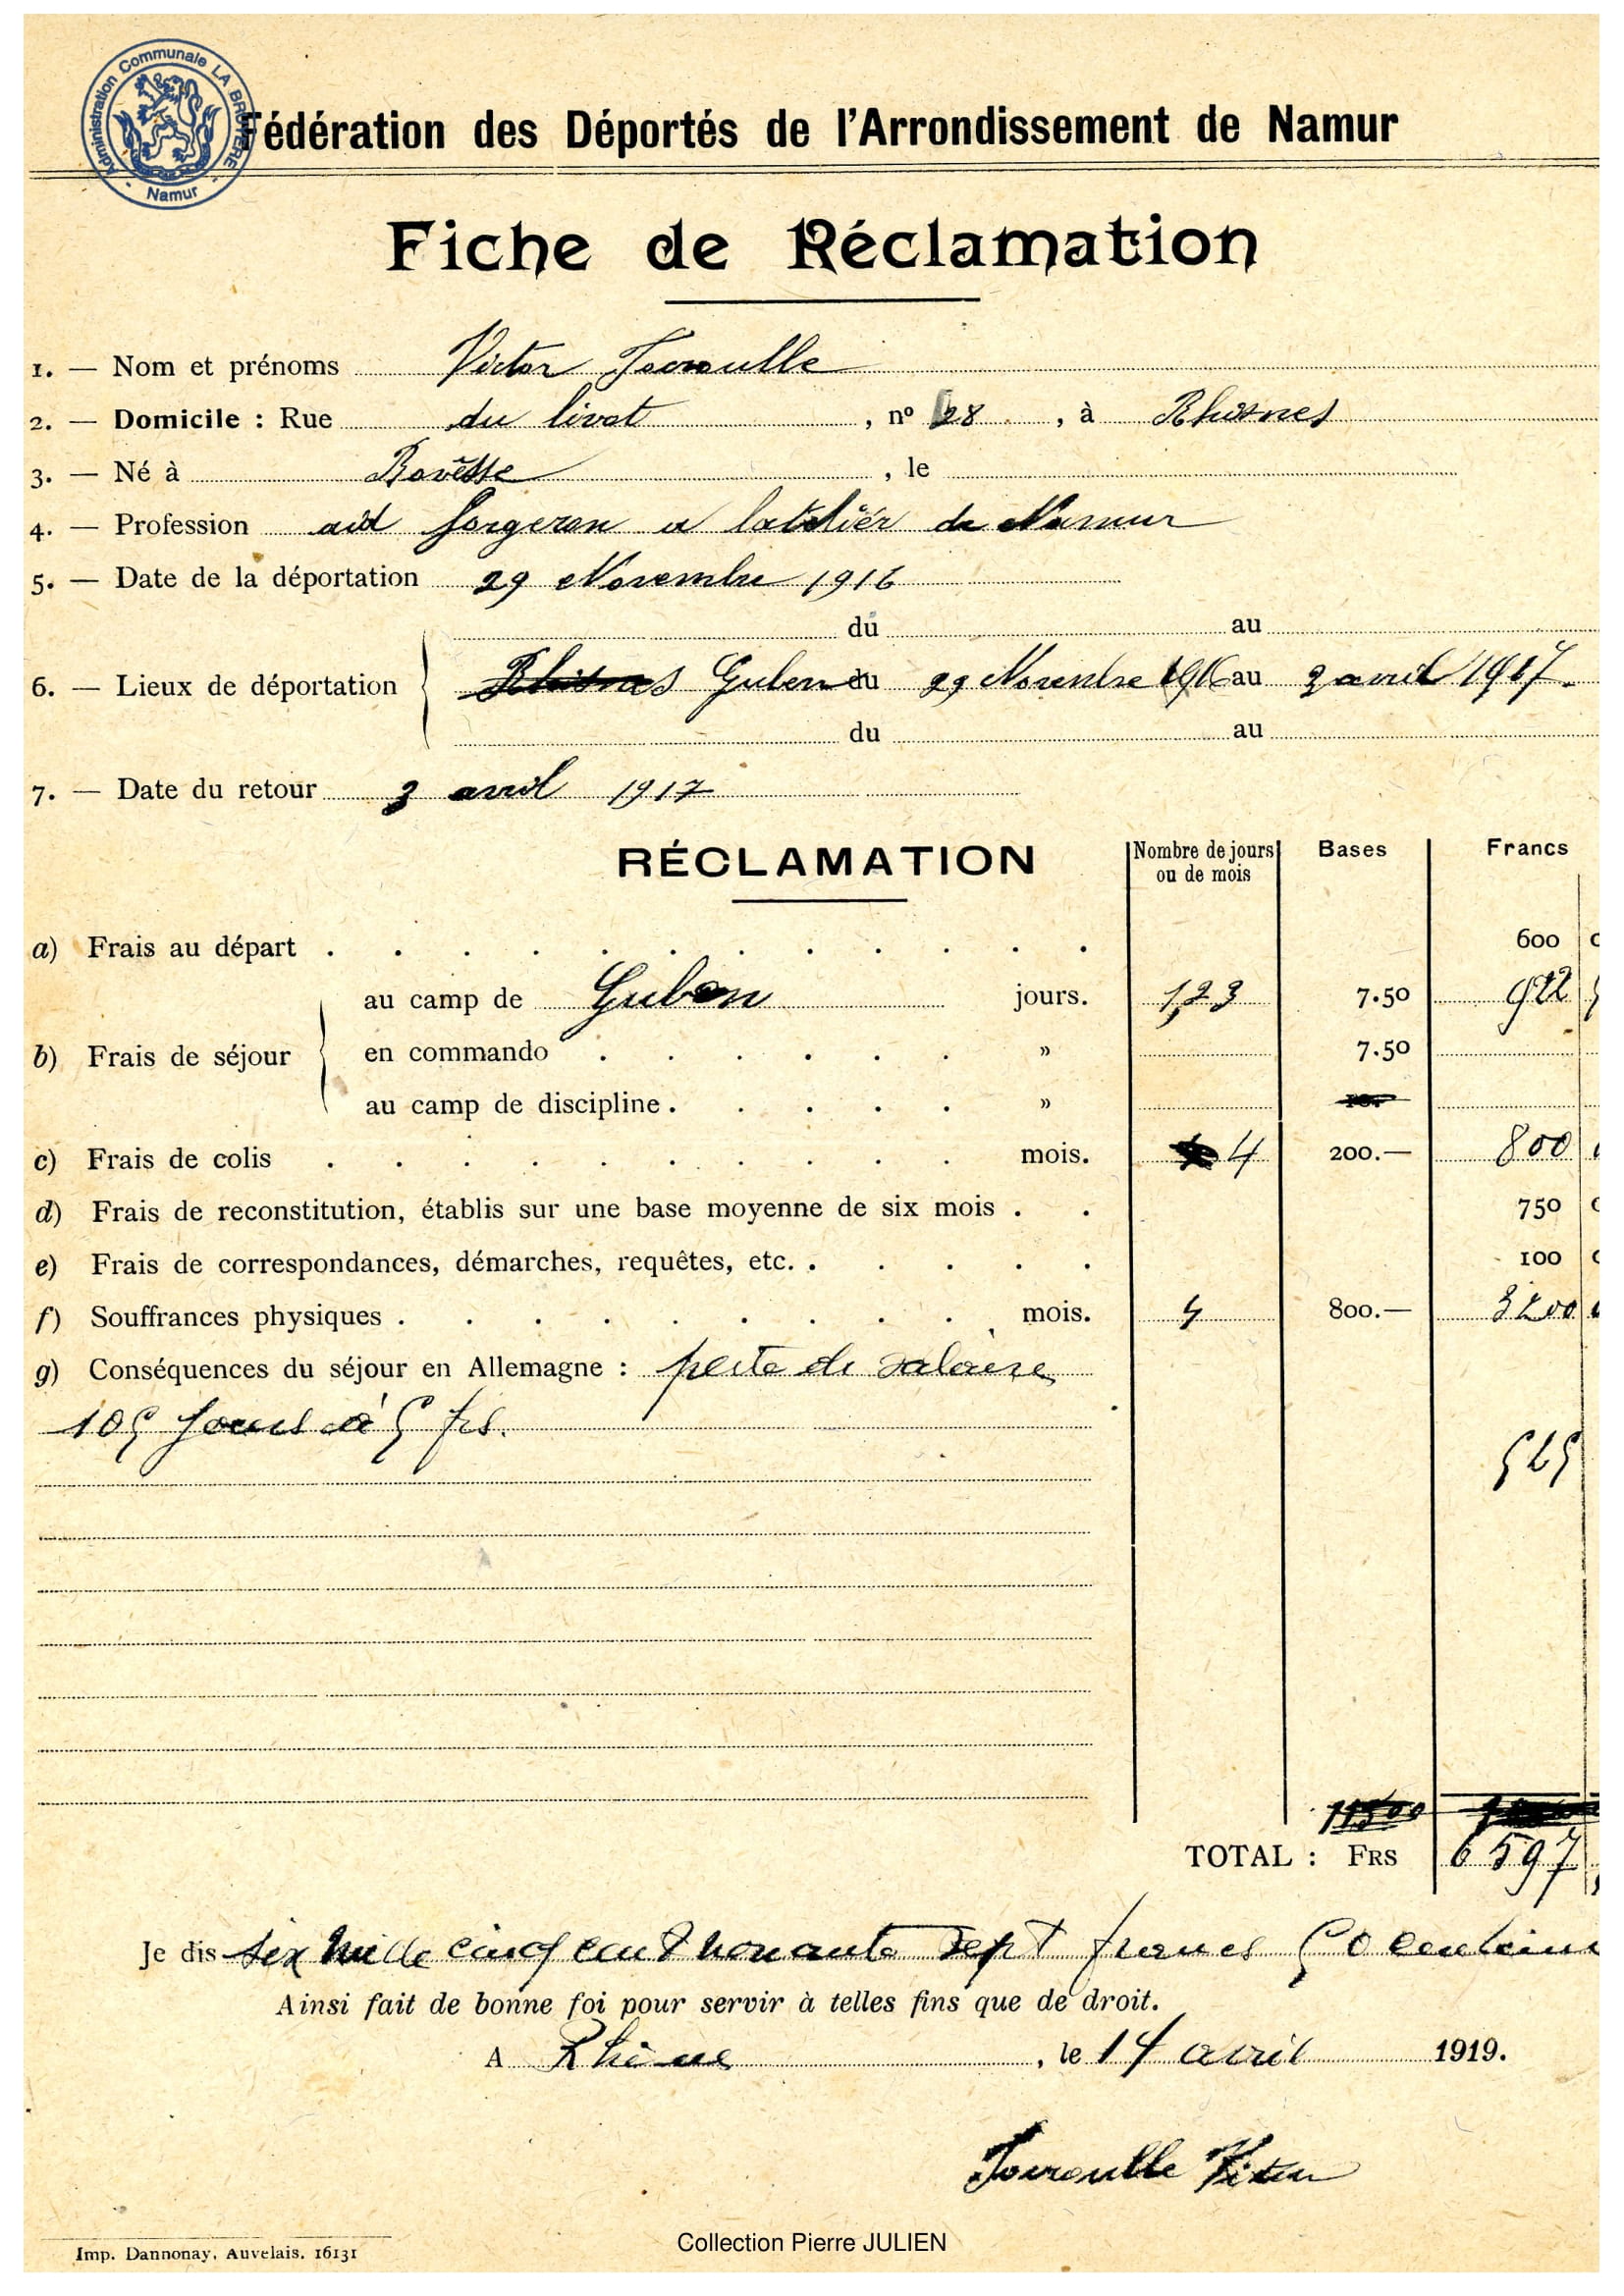 Administration Communale LA BRUYERE
- Namur -
Fédération des Déportés de l'Arrondissement de Namur
Fiche de Réclamation
1. — Nom et prénoms Victor
2. — Domicile : Rue du livot , nº 28 , à Rhisnes
3. — Né à Bovêsse , le
4. — Profession aid forgeron a latelier de Namur
5. — Date de la déportation 29 Novembre 1916
du au
6. — Lieux de déportation Guben du 29 Novembre 1916 au 3 avril 1917.
du au
7. — Date du retour 3 avril 1917
RÉCLAMATION
Nombre de jours ou de mois Bases Francs
a) Frais au départ . . . . . . . . . . . . 600
au camp de Guben jours. 123 7.50 922
b) Frais de séjour
en commando . . . . . . » 7.50
au camp de discipline . . . . . »
c) Frais de colis . . . . . . . . . . mois. 4 200.— 800
d) Frais de reconstitution, établis sur une base moyenne de six mois . . 750
e) Frais de correspondances, démarches, requêtes, etc. . . . . . 100
f) Souffrances physiques . . . . . . . . . mois. 4 800.— 3200
g) Conséquences du séjour en Allemagne : perte de salaire
105 jours à 5 frs.
525
11500
TOTAL : FRS 6597
Je dis six mille cinq cent nonante sept francs 50 centime
Ainsi fait de bonne foi pour servir à telles fins que de droit.
A Rhisnes , le 14 avril 1919.
Victor
Imp. Dannonay, Auvelais. 16131
Collection Pierre JULIEN